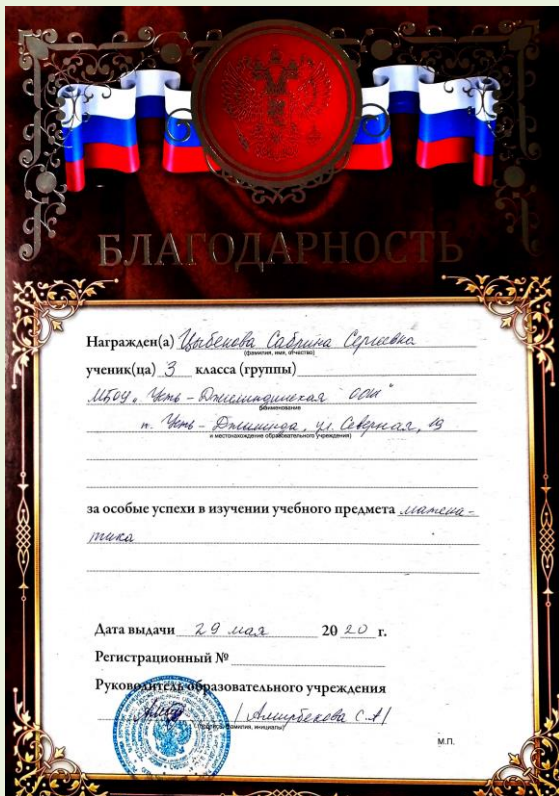 БЛАГОДАРНОСТЬ
Награжден(а) Цыбекова Сабрина Сергеевна
(фамилия, имя, отчество)
ученик(ца) 3 класса (группы)
МБОУ "Усть-Джилиндинская ООШ"
(наименование
п. Усть-Джилинда, ул. Северная, 19
и местонахождение образовательного учреждения)
за особые успехи в изучении учебного предмета матема-
тика
Дата выдачи 29 мая 20 20 г.
Регистрационный №
Руководитель образовательного учреждения
/ Амирбекова С.А /
фамилия, инициалы)
М.П.